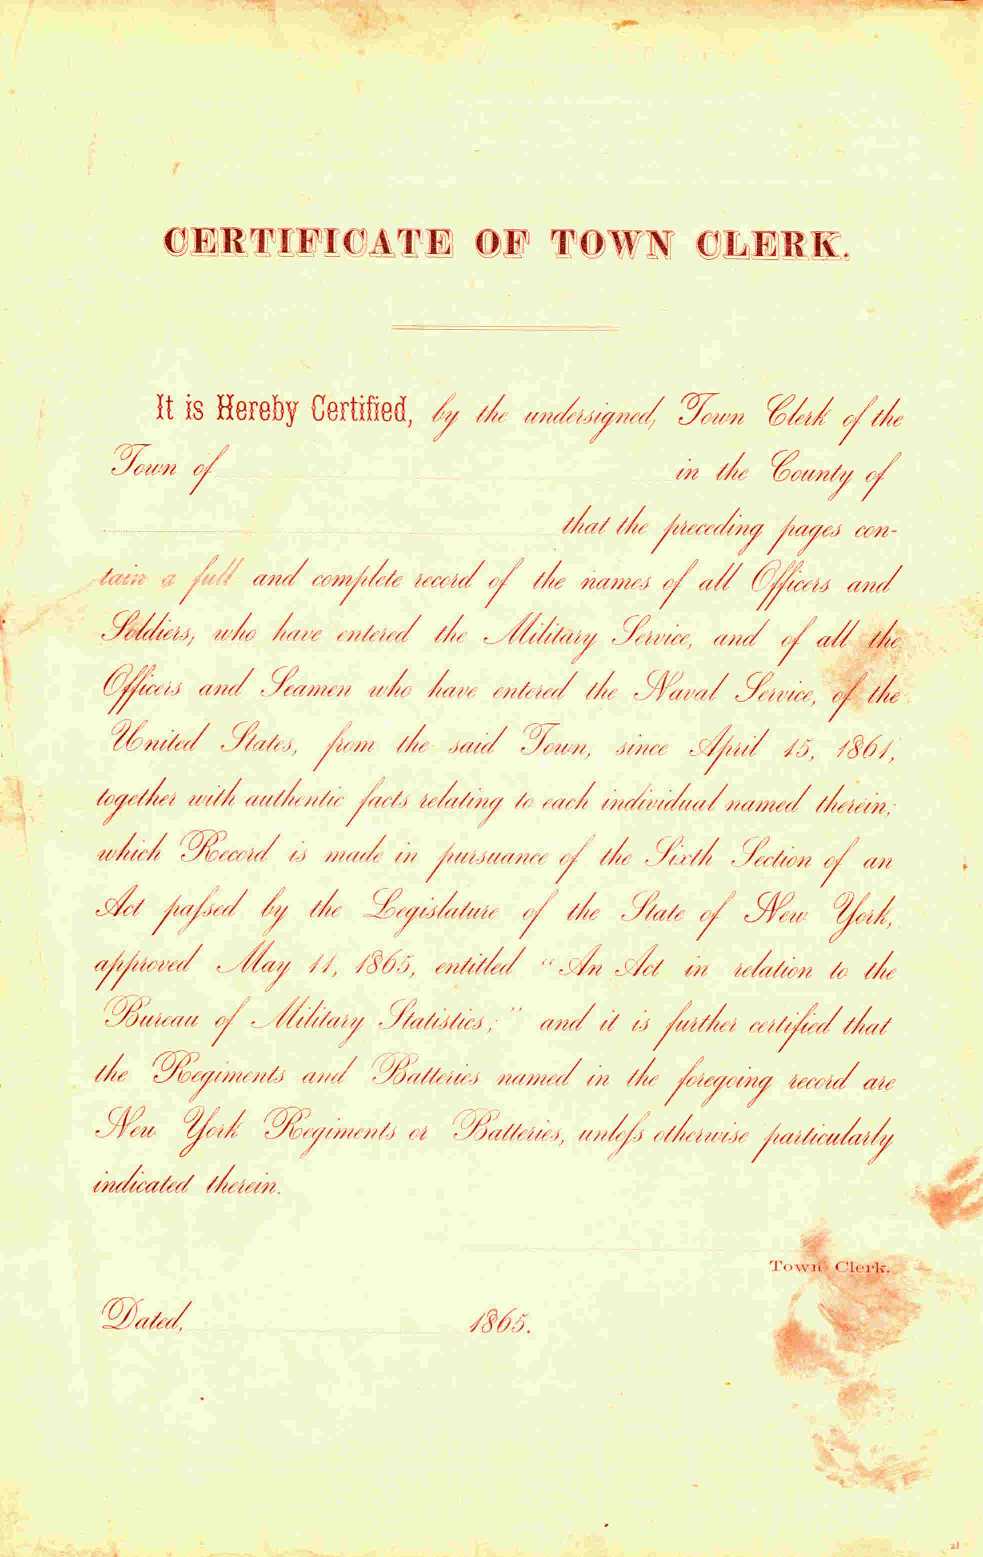 CERTIFICATE OF TOWN CLERK.
It is Hereby Certified, by the undersigned, Town Clerk of the
Town of in the County of
that the preceding pages con-
tain a full and complete record of the names of all Officers and
Soldiers, who have entered the Military Service, and of all the
Officers and Seamen who have entered the Naval Service, of the
United States, from the said Town, since April 15, 1861,
together with authentic facts relating to each individual named therein;
which Record is made in pursuance of the Sixth Section of an
Act paſsed by the Legislature of the State of New York,
approved May 11, 1865, entitled “An Act in relation to the
Bureau of Military Statistics;” and it is further certified that
the Regiments and Batteries named in the foregoing record are
New York Regiments or Batteries, unleſs otherwise particularly
indicated therein.
Town Clerk.
Dated, 1865.